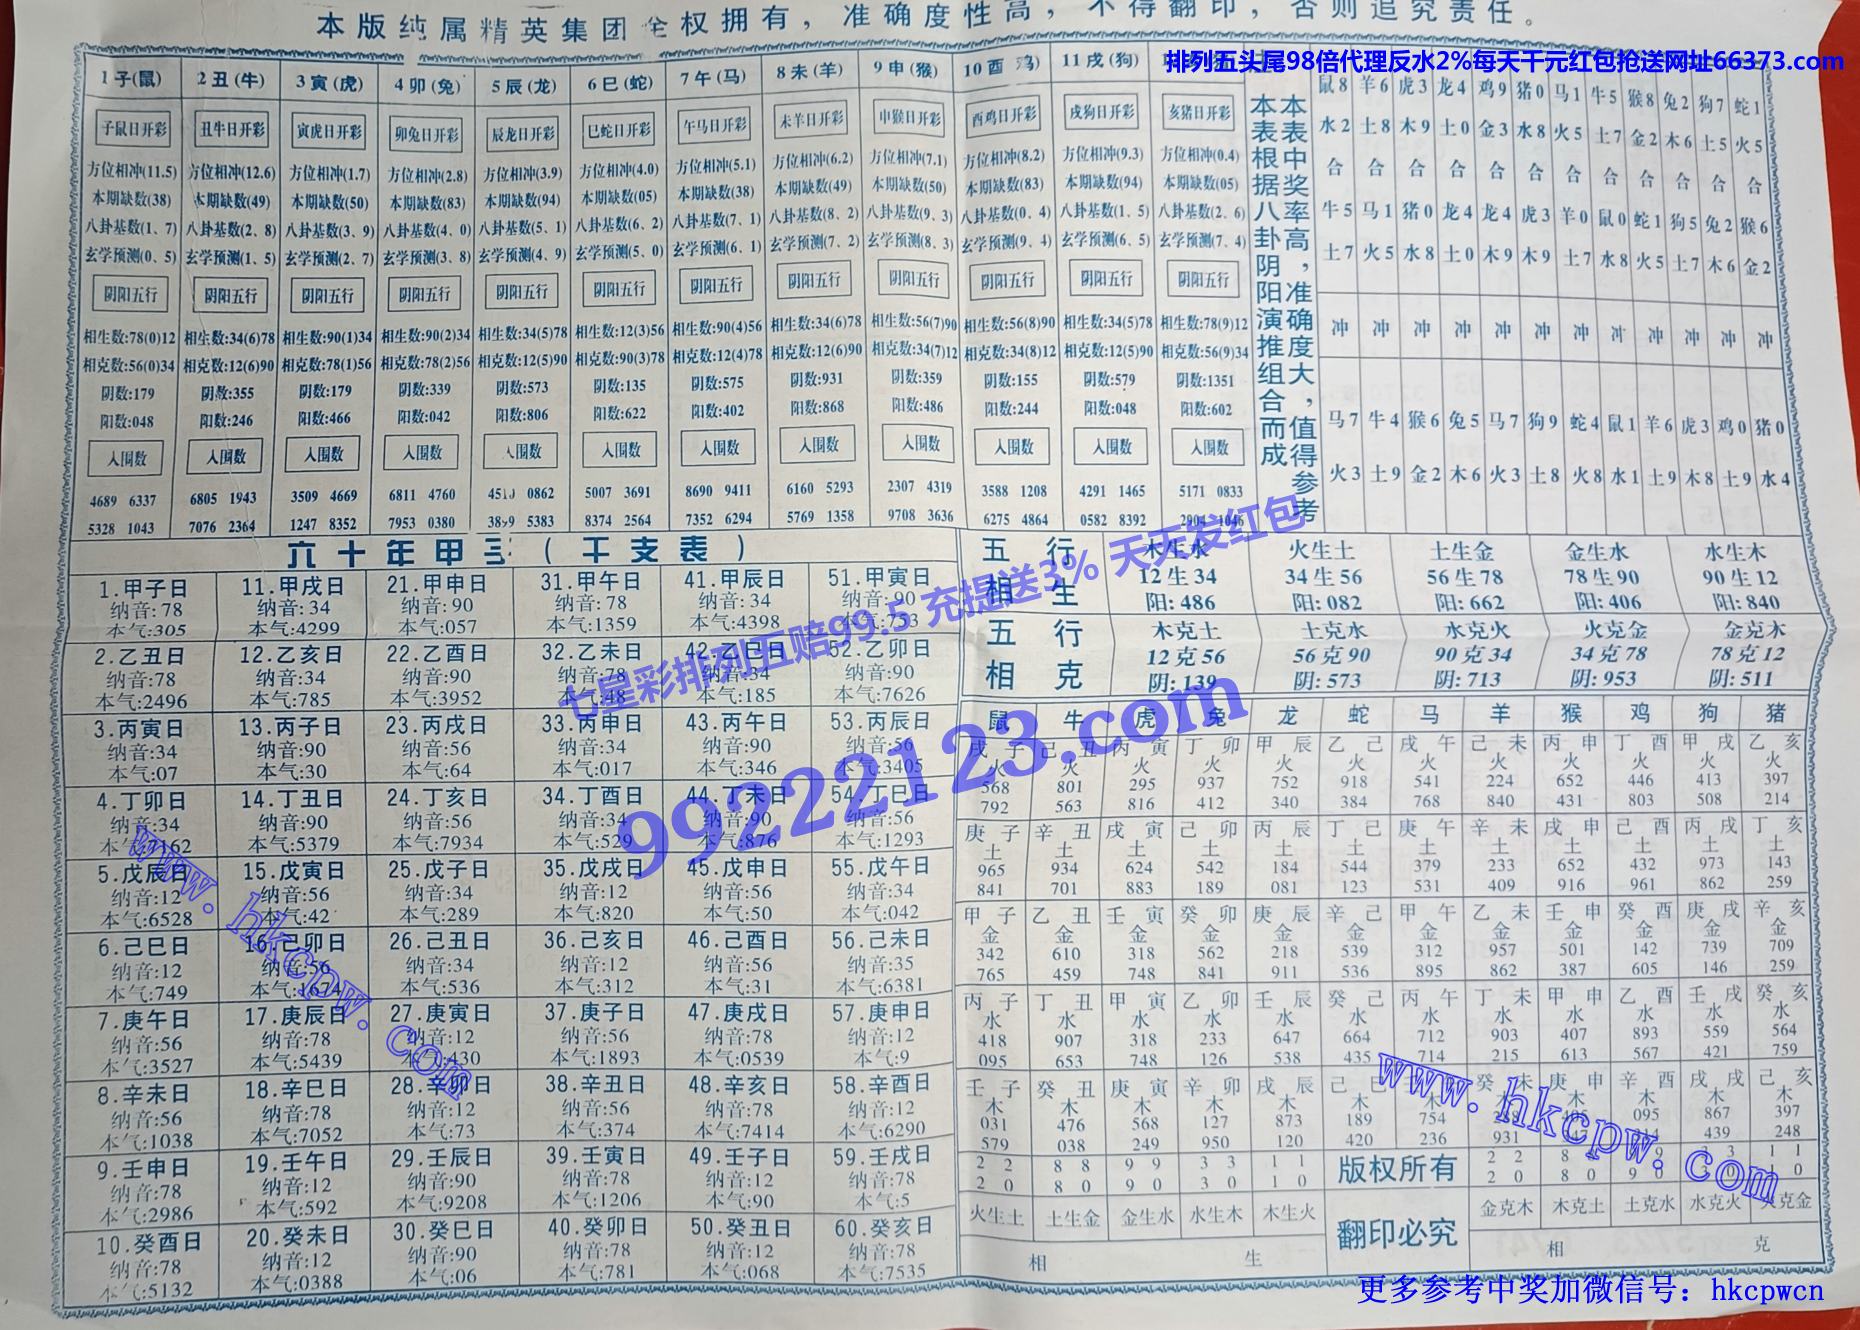 本版纯属精英集团全权拥有，准确度性高，不得翻印，否则追究责任。
排列五头尾98倍代理反水2%每天千元红包抢送网址66373.com
1子(鼠) 2丑(牛) 3寅(虎) 4卯(兔) 5辰(龙) 6巳(蛇) 7午(马) 8未(羊) 9申(猴) 10酉 鸡) 11戌(狗)
子鼠日开彩 丑牛日开彩 寅虎日开彩 卯兔日开彩 辰龙日开彩 巳蛇日开彩 午马日开彩 未羊日开彩 申猴日开彩 酉鸡日开彩 戌狗日开彩 亥猪日开彩
方位相冲(11.5) 方位相冲(12.6) 方位相冲(1.7) 方位相冲(2.8) 方位相冲(3.9) 方位相冲(4.0) 方位相冲(5.1) 方位相冲(6.2) 方位相冲(7.1) 方位相冲(8.2) 方位相冲(9.3) 方位相冲(0.4)
本期缺数(38) 本期缺数(49) 本期缺数(50) 本期缺数(83) 本期缺数(94) 本期缺数(05) 本期缺数(38) 本期缺数(49) 本期缺数(50) 本期缺数(83) 本期缺数(94) 本期缺数(05)
八卦基数(1、7) 八卦基数(2、8) 八卦基数(3、9) 八卦基数(4、0) 八卦基数(5、1) 八卦基数(6、2) 八卦基数(7、1) 八卦基数(8、2) 八卦基数(9、3) 八卦基数(0、4) 八卦基数(1、5) 八卦基数(2、6)
玄学预测(0、5) 玄学预测(1、5) 玄学预测(2、7) 玄学预测(3、8) 玄学预测(4、9) 玄学预测(5、0) 玄学预测(6、1) 玄学预测(7、2) 玄学预测(8、3) 玄学预测(9、4) 玄学预测(6、5) 玄学预测(7、4)
阴阳五行 阴阳五行 阴阳五行 阴阳五行 阴阳五行 阴阳五行 阴阳五行 阴阳五行 阴阳五行 阴阳五行 阴阳五行 阴阳五行
相生数:78(0)12 相生数:34(6)78 相生数:90(1)34 相生数:90(2)34 相生数:34(5)78 相生数:12(3)56 相生数:90(4)56 相生数:34(6)78 相生数:56(7)90 相生数:56(8)90 相生数:34(5)78 相生数:78(9)12
相克数:56(0)34 相克数:12(6)90 相克数:78(1)56 相克数:78(2)56 相克数:12(5)90 相克数:90(3)78 相克数:12(4)78 相克数:12(6)90 相克数:34(7)12 相克数:34(8)12 相克数:12(5)90 相克数:56(9)34
阴数:179 阴数:355 阴数:179 阴数:339 阴数:573 阴数:135 阴数:575 阴数:931 阴数:359 阴数:155 阴数:579 阴数:1351
阳数:048 阳数:246 阳数:466 阳数:042 阳数:806 阳数:622 阳数:402 阳数:868 阳数:486 阳数:244 阳数:048 阳数:602
入围数 入围数 入围数 入围数 入围数 入围数 入围数 入围数 入围数 入围数 入围数 入围数
4689 6337 6805 1943 3509 4669 6811 4760 0862 5007 3691 8690 9411 6160 5293 2307 4319 3588 1208 4291 1465 5171 0833
5328 1043 7076 2364 1247 8352 7953 0380 5383 8374 2564 7352 6294 5769 1358 9708 3636 6275 4864 0582 8392 2904 1046
本表中奖率高，准确度大，值得参考
本表根据八卦阴阳演推组合而成
鼠8 羊6 虎3 龙4 鸡9 猪0 马1 牛5 猴8 兔2 狗7 蛇1
水2 土8 木9 土0 金3 水8 火5 土7 金2 木6 土5 火5
合 合 合 合 合 合 合 合 合 合 合 合
牛5 马1 猪0 龙4 龙4 虎3 羊0 鼠0 蛇1 狗5 兔2 猴6
土7 火5 水8 土0 木9 木9 土7 水8 火5 土7 木6 金2
冲 冲 冲 冲 冲 冲 冲 冲 冲 冲 冲 冲
马7 牛4 猴6 兔5 马7 狗9 蛇4 鼠1 羊6 虎3 鸡0 猪0
火3 土9 金2 木6 火3 土8 火8 水1 土9 木8 土9 水4
六十年甲子(干支表)
1.甲子日 11.甲戌日 21.甲申日 31.甲午日 41.甲辰日 51.甲寅日
纳音:78 纳音:34 纳音:90 纳音:78 纳音:34 纳音:90
本气:305 本气:4299 本气:057 本气:1359 本气:4398 本气:753
2.乙丑日 12.乙亥日 22.乙酉日 32.乙未日 42.乙巳日 52.乙卯日
纳音:78 纳音:34 纳音:90 纳音:78 纳音:34 纳音:90
本气:2496 本气:785 本气:3952 本气:48 本气:185 本气:7626
3.丙寅日 13.丙子日 23.丙戌日 33.丙申日 43.丙午日 53.丙辰日
纳音:34 纳音:90 纳音:56 纳音:34 纳音:90 纳音:56
本气:07 本气:30 本气:64 本气:017 本气:346 本气:3405
4.丁卯日 14.丁丑日 24.丁亥日 34.丁酉日 44.丁未日 54.丁巳日
纳音:34 纳音:90 纳音:56 纳音:34 纳音:90 纳音:56
本气:5379 本气:7934 本气:529 本气:876 本气:1293
5.戊辰日 15.戊寅日 25.戊子日 35.戊戌日 45.戊申日 55.戊午日
纳音:12 纳音:56 纳音:34 纳音:12 纳音:56 纳音:34
本气:6528 本气:42 本气:289 本气:820 本气:50 本气:042
6.己巳日 16.己卯日 26.己丑日 36.己亥日 46.己酉日 56.己未日
纳音:12 纳音:56 纳音:34 纳音:12 纳音:56 纳音:35
本气:749 本气:1674 本气:536 本气:312 本气:31 本气:6381
7.庚午日 17.庚辰日 27.庚寅日 37.庚子日 47.庚戌日 57.庚申日
纳音:56 纳音:78 纳音:12 纳音:56 纳音:78 纳音:12
本气:3527 本气:5439 本气:430 本气:1893 本气:0539 本气:9
8.辛未日 18.辛巳日 28.辛卯日 38.辛丑日 48.辛亥日 58.辛酉日
纳音:56 纳音:78 纳音:12 纳音:56 纳音:78 纳音:12
本气:1038 本气:7052 本气:73 本气:374 本气:7414 本气:6290
9.壬申日 19.壬午日 29.壬辰日 39.壬寅日 49.壬子日 59.壬戌日
纳音:78 纳音:12 纳音:90 纳音:78 纳音:12 纳音:78
本气:2986 本气:592 本气:9208 本气:1206 本气:90 本气:5
10.癸酉日 20.癸未日 30.癸巳日 40.癸卯日 50.癸丑日 60.癸亥日
纳音:78 纳音:12 纳音:90 纳音:78 纳音:12 纳音:78
本气:5132 本气:0388 本气:06 本气:781 本气:068 本气:7535
五行相生
木生水 火生土 土生金 金生水 水生木
12生34 34生56 56生78 78生90 90生12
阳:486 阳:082 阳:662 阳:406 阳:840
五行相克
木克土 土克水 水克火 火克金 金克木
12克56 56克90 90克34 34克78 78克12
阴:139 阴:573 阴:713 阴:953 阴:511
鼠 牛 虎 兔 龙 蛇 马 羊 猴 鸡 狗 猪
戊子 己丑 丙寅 丁卯 甲辰 乙己 戌午 己未 丙申 丁酉 甲戌 乙亥
火 火 火 火 火 火 火 火 火 火 火 火
568 801 295 937 752 918 541 224 652 446 413 397
792 563 816 412 340 384 768 840 431 803 508 214
庚子 辛丑 戌寅 己卯 丙辰 丁己 庚午 辛未 戌申 己酉 丙戌 丁亥
土 土 土 土 土 土 土 土 土 土 土 土
965 934 624 542 184 544 379 233 652 432 973 143
841 701 883 189 081 123 531 409 916 961 862 259
甲子 乙丑 壬寅 癸卯 庚辰 辛己 甲午 乙未 壬申 癸酉 庚戌 辛亥
金 金 金 金 金 金 金 金 金 金 金 金
342 610 318 562 218 539 312 957 501 142 739 709
765 459 748 841 911 536 895 862 387 605 146 259
丙子 丁丑 甲寅 乙卯 壬辰 癸己 丙午 丁未 甲申 乙酉 壬戌 癸亥
水 水 水 水 水 水 水 水 水 水 水 水
418 907 318 233 647 664 712 903 407 893 559 564
095 653 748 126 538 435 714 215 613 567 421 759
壬子 癸丑 庚寅 辛卯 戌辰 己 癸未 庚申 辛酉 戌戌 己亥
木 木 木 木 木 木 木 木 木 木 木
031 476 568 127 873 189 754 095 867 397
579 038 249 950 120 420 236 931 439 248
2 2 8 8 9 9 3 3 1 1 版权所有 2 2 8 9 3 1 1
2 0 8 0 9 0 3 0 1 0 2 0 8 0 9 0 0
火生土 土生金 金生水 水生木 木生火 翻印必究 金克木 木克土 土克水 水克火 火克金
相 生 相 克
七星彩排列五赔99.5 充提送3% 天天发红包
99222123.com
www.hkcpw.com
www.hkcpw.com
更多参考中奖加微信号：hkcpwcn